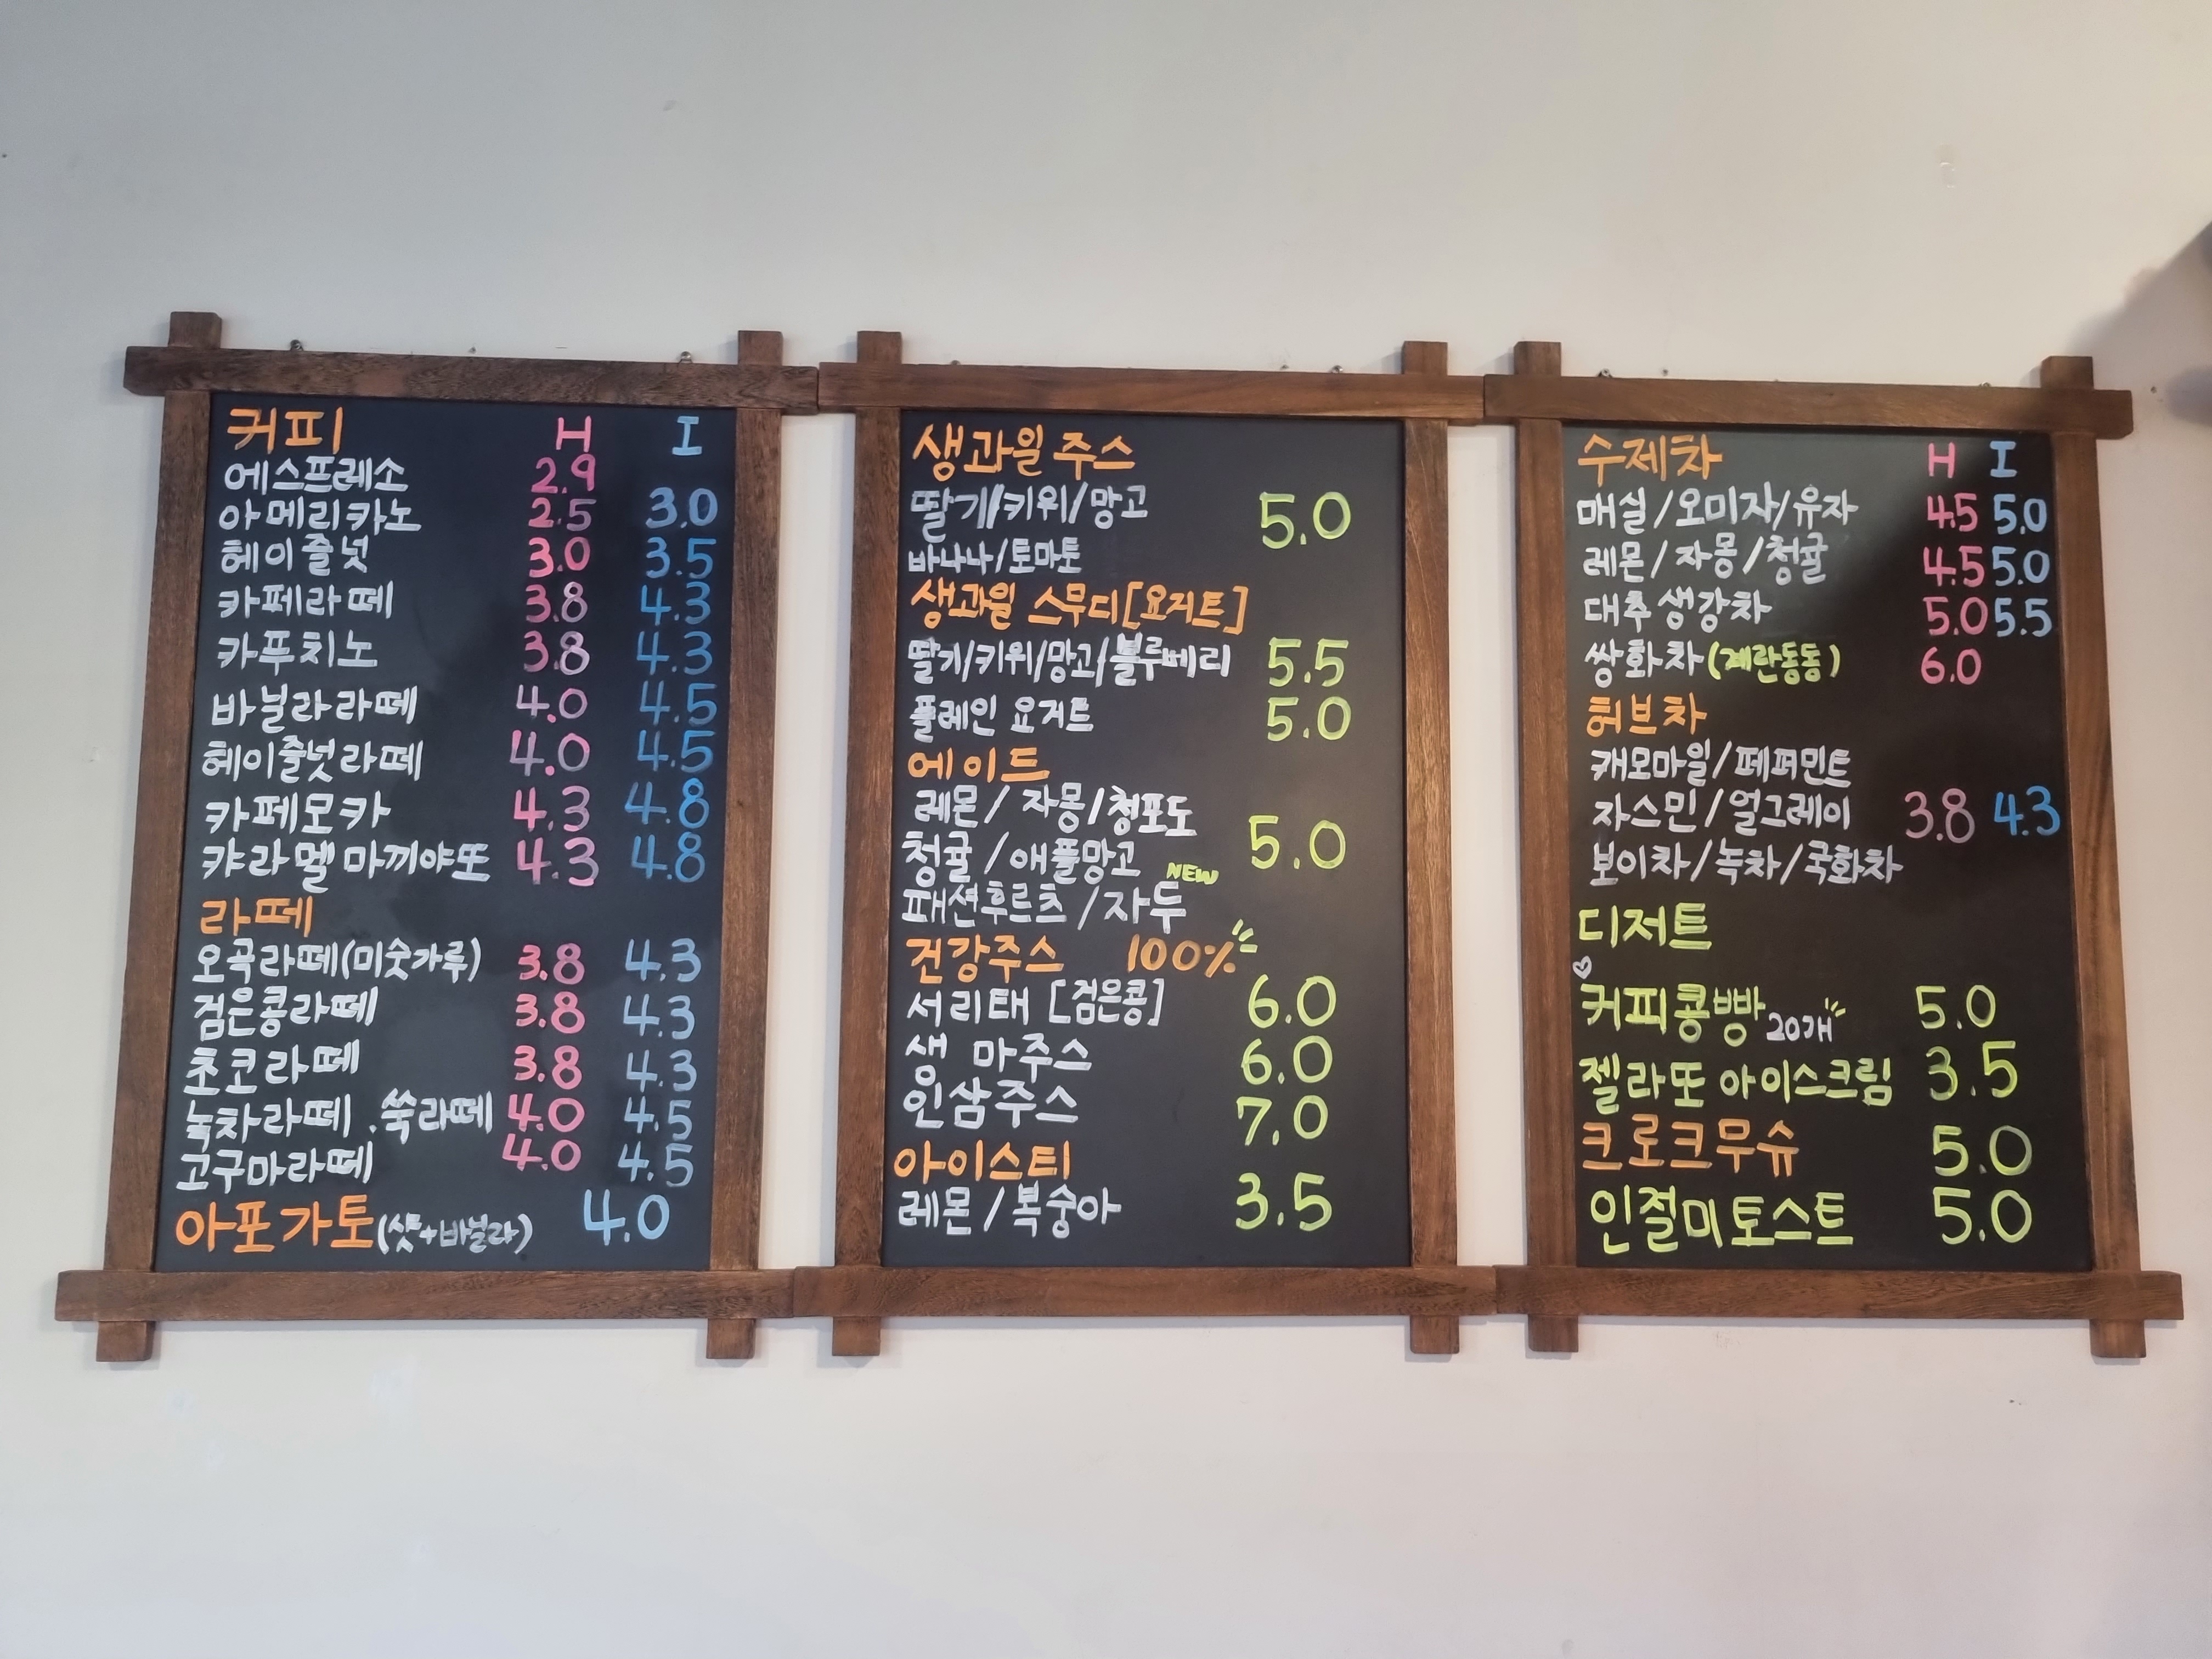 커피 H I
에스프레소 2.9
아메리카노 2.5 3.0
헤이즐넛 3.0 3.5
카페라떼 3.8 4.3
카푸치노 3.8 4.3
바닐라라떼 4.0 4.5
헤이즐넛라떼 4.0 4.5
카페모카 4.3 4.8
캬라멜마끼야또 4.3 4.8
라떼
오곡라떼(미숫가루) 3.8 4.3
검은콩라떼 3.8 4.3
초코라떼 3.8 4.3
녹차라떼 .쑥라떼 4.0 4.5
고구마라떼 4.0 4.5
아포가토(샷+바닐라) 4.0
생과일주스
딸기/키위/망고 5.0
바나나/토마토
생과일 스무디[요거트]
딸기/키위/망고/블루베리 5.5
플레인 요거트 5.0
에이드
레몬/자몽/청포도
청귤/애플망고 5.0
NEW
패션후르츠/자두
건강주스 100%
서리태 [검은콩] 6.0
생 마주스 6.0
인삼주스 7.0
아이스티
레몬/복숭아 3.5
수제차 H I
매실/오미자/유자 4.5 5.0
레몬/자몽/청귤 4.5 5.0
대추생강차 5.0 5.5
쌍화차(계란동동) 6.0
허브차
캐모마일/페퍼민트
자스민/얼그레이 3.8 4.3
보이차/녹차/국화차
디저트
커피콩빵 20개 5.0
젤라또 아이스크림 3.5
크로크무슈 5.0
인절미토스트 5.0